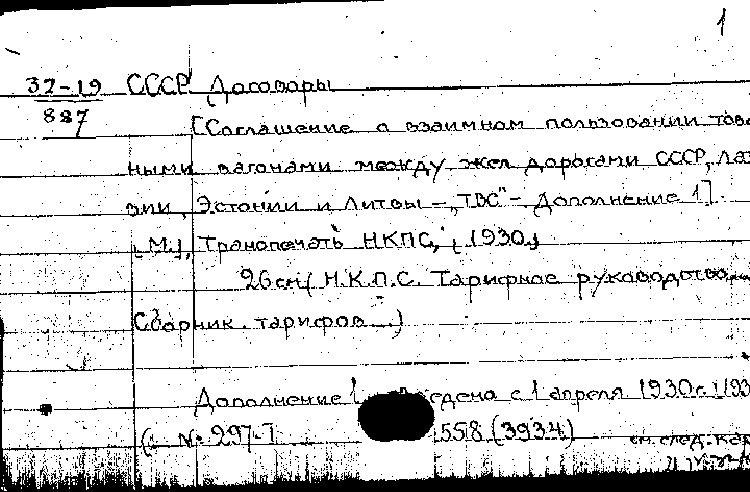 1
32-19 СССР Договоры
887
[Соглашение о взаимном пользовании това
ными вагонами между жел дорогами СССР, Лат
вии, Эстонии и Литвы – „ТВС" – Дополнение 1].
[М.], Транспечать НКПС, [1930]
26 см ( Н.К.П.С. Тарифное руководство
Сборник тарифов ...)
Дополнение 1 с 1 апреля 1930 г.
№ 297-Т 1558 (3934)
см. след. кар